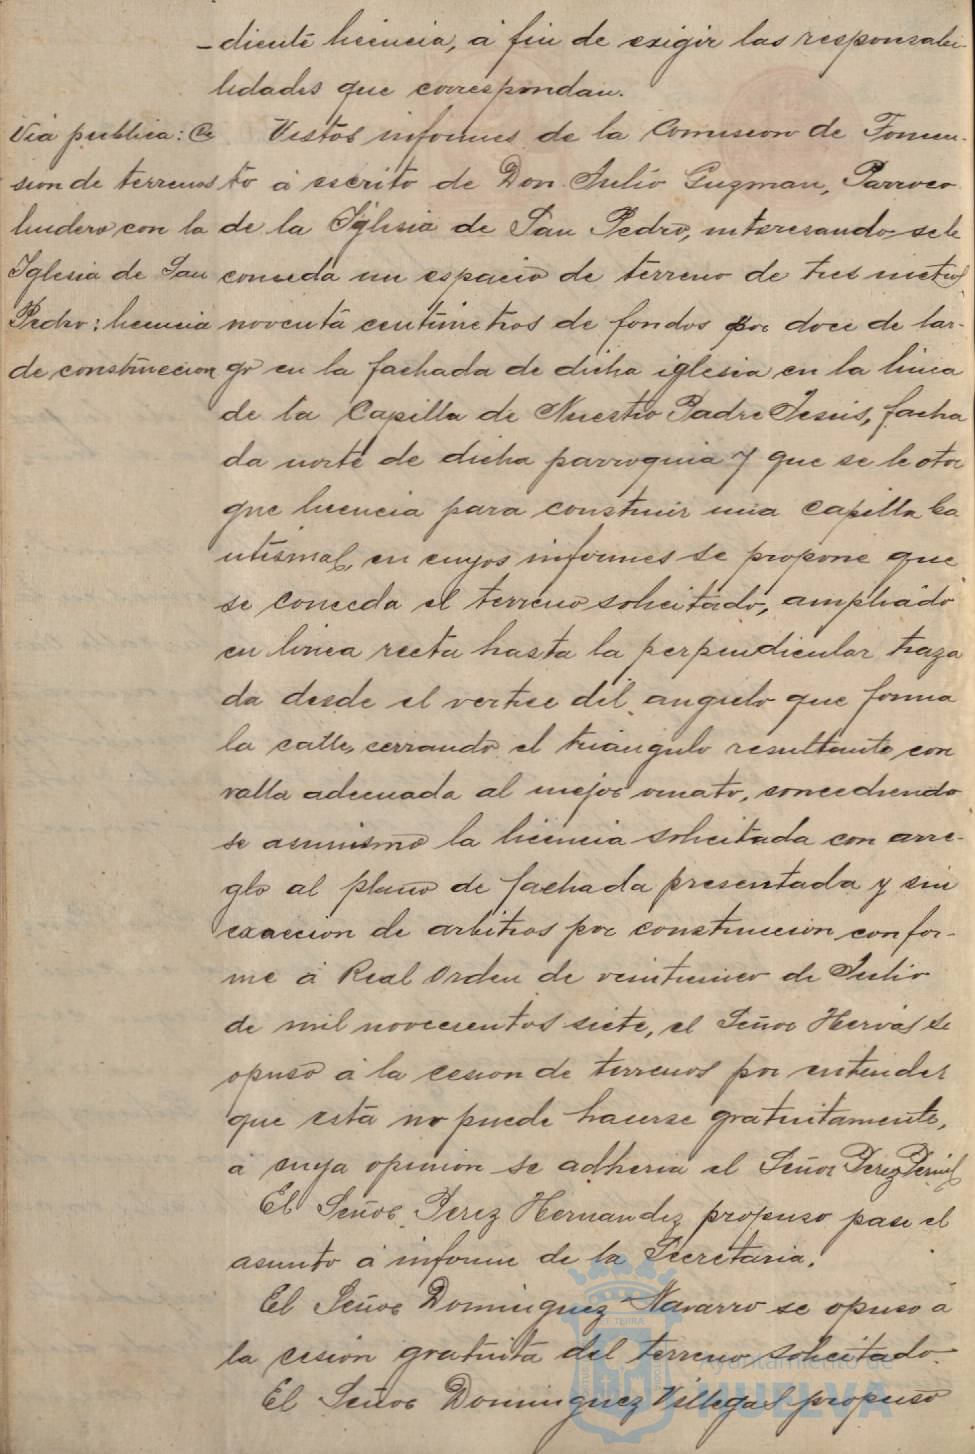 -diente licencia, á fin de exigir las responsabi-
lidades que correspondan.
Via publica: Ce
sion de terrenos
lindero con la
Iglesia de San
Pedro: licencia
de construccion
Vistos informes de la Comision de Fomen-
to á escrito de Don Julio Guzman, Parroco
de la Iglesia de San Pedro, interesando se le
conceda un espacio de terreno de tres metros
noventa centimetros de fondos por doce de lar-
go en la fachada de dicha iglesia en la linea
de la Capilla de Nuestro Padre Jesús, facha
da norte de dicha parroquia y que se le otor
gue licencia para construir una capilla ba
utismal, en cuyos informes se propone que
se conceda el terreno solicitado, ampliado
en linea recta hasta la perpendicular traza
da desde el vertice del angulo que forma
la calle, cerrando el triángulo resultante con
valla adecuada al mejor ornato, concediendo
se asimismo la licencia solicitada con arre-
glo al plano de fachada presentada y sin
exaccion de arbitrios por construccion confor-
me á Real Orden de veintinueve de Julio
de mil novecientos siete, el Señor Hervás se
opuso á la cesion de terrenos por entender
que esta no puede hacerse gratuitamente,
á cuya opinion se adheria el Señor Perez
El Señor Perez Hernandez propuso pase el
asunto á informe de la Secretaria.
El Señor Dominguez Navarro se opuso á
la cesión gratuita del terreno solicitado.
El Señor Dominguez Villegas propuso
Ayuntamiento de
HUELVA